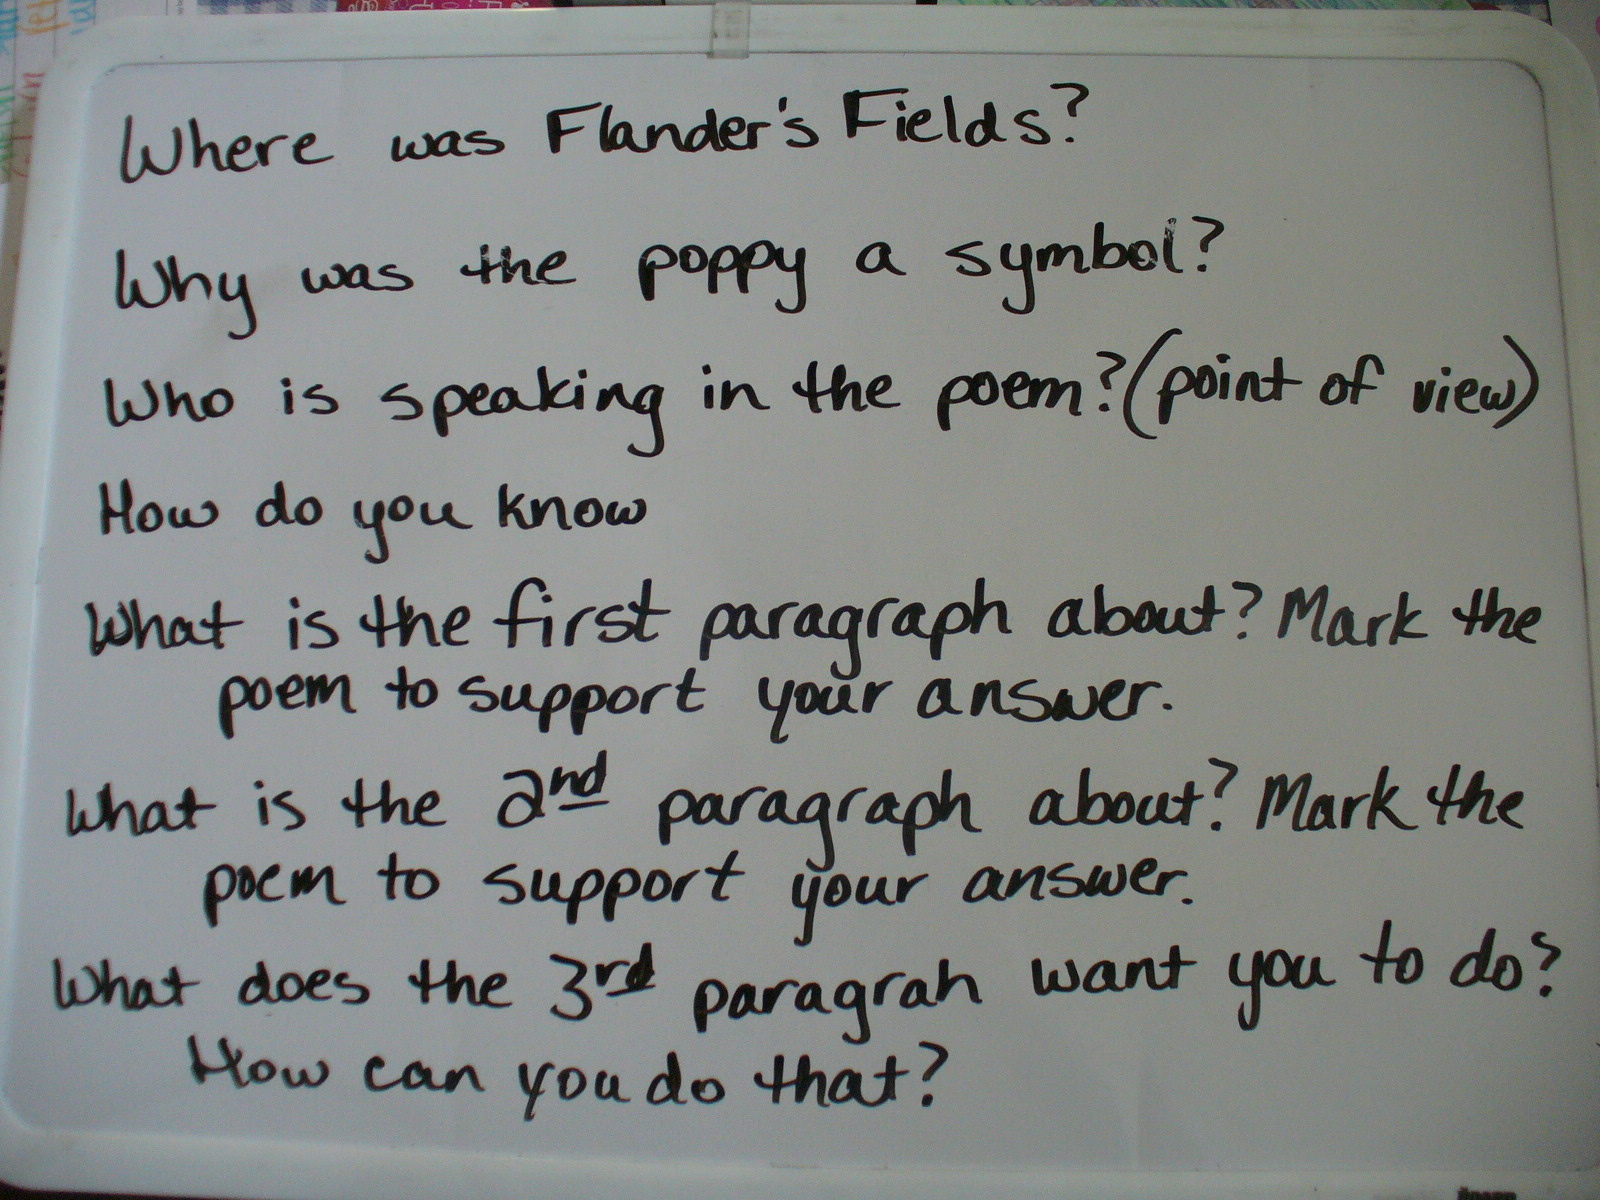 Where was Flander's Fields?
Why was the poppy a symbol?
Who is speaking in the poem? (point of view)
How do you know
What is the first paragraph about? Mark the
poem to support your answer.
What is the 2nd paragraph about? Mark the
poem to support your answer.
What does the 3rd paragrah want you to do?
How can you do that?